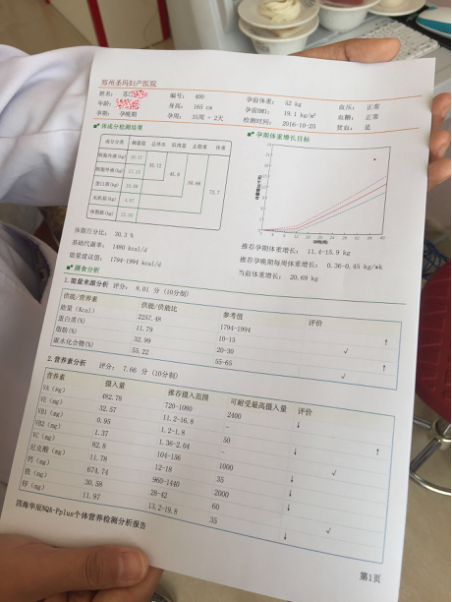 郑州圣玛妇产医院
姓名： 编号： 400 孕前体重： 52 kg 血压： 正常
年龄： 身高： 165 cm 孕前BMI： 19.1 kg/m² 血糖： 正常
孕期： 孕晚期 孕周： 35周 + 2天 检测时间： 2016-10-25 贫血： 是
体成分检测结果
孕期体重增长目标
成分分类 测量值 总体水 去脂体重 体重
细胞内液(kg)
细胞外液(kg) 33.72
蛋白质(kg) 45.9
无机盐(kg) 72.7
体脂肪(kg)
体脂百分比： 30.3 %
基础代谢率： 1460 kcal/d
能量建议值： 1794-1994 kcal/d
推荐孕期体重增长： 11.4-15.9 kg
推荐孕晚期每周体重增长： 0.36-0.45 kg/wk
当前体重增长： 20.69 kg
膳食分析
1.能量来源分析 评分： 8.01 分 (10分制)
供能/营养素 供能/供能比 参考值 评价
能量(Kcal) 2237.48 1794-1994 ↑
蛋白质(%) 11.79 10-15 √
脂肪(%) 32.99 20-30 ↑
碳水化合物(%) 55.22 55-65 √
2.营养素分析 评分： 7.66 分 (10分制)
营养素 摄入量 推荐摄入范围 可耐受最高摄入量 评价
VA (μg) 482.78 720-1080 2400 ↓
VE (mg) 32.57 11.2-16.8 - ↑
VB1 (mg) 0.95 1.2-1.8 ↓
VB2 (mg) 1.37 1.36-2.04 - √
VC (mg) 82.8 104-156 1000 ↓
尼克酸 (mg) 11.78 12-18 35 ↓
钙 (mg) 674.74 960-1440 2000 ↓
铁 (mg) 30.58 28-42 60 √
锌 (mg) 11.97 13.2-19.8 35 ↓
个体营养检测分析报告
第1页